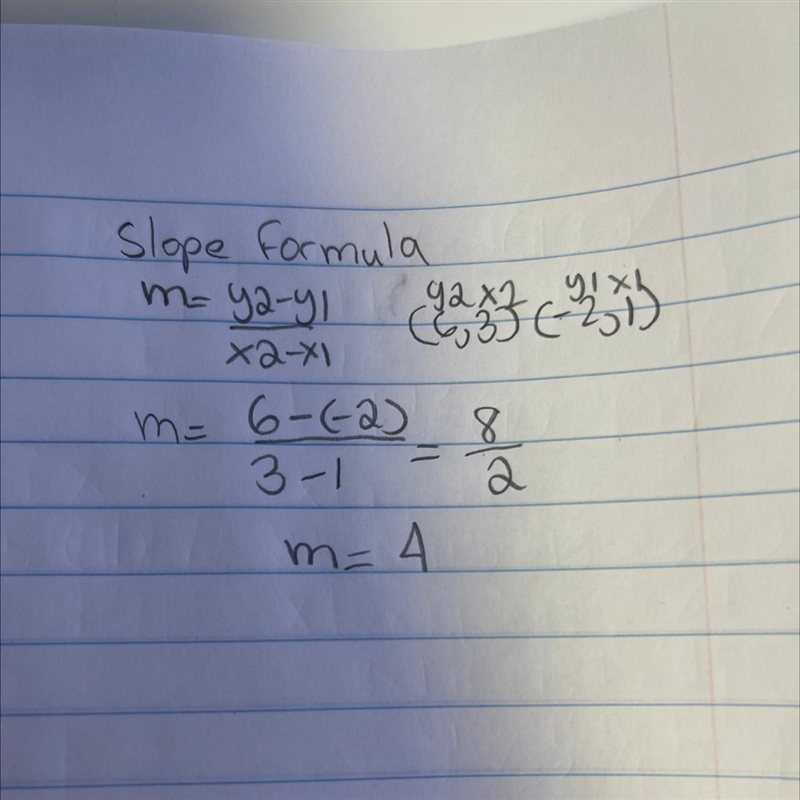 Slope Formula
m= y2-y1 / x2-x1 y2 x2 (6,3) y1 x1 (-2,1)
m= 6-(-2) / 3-1 = 8 / 2
m= 4